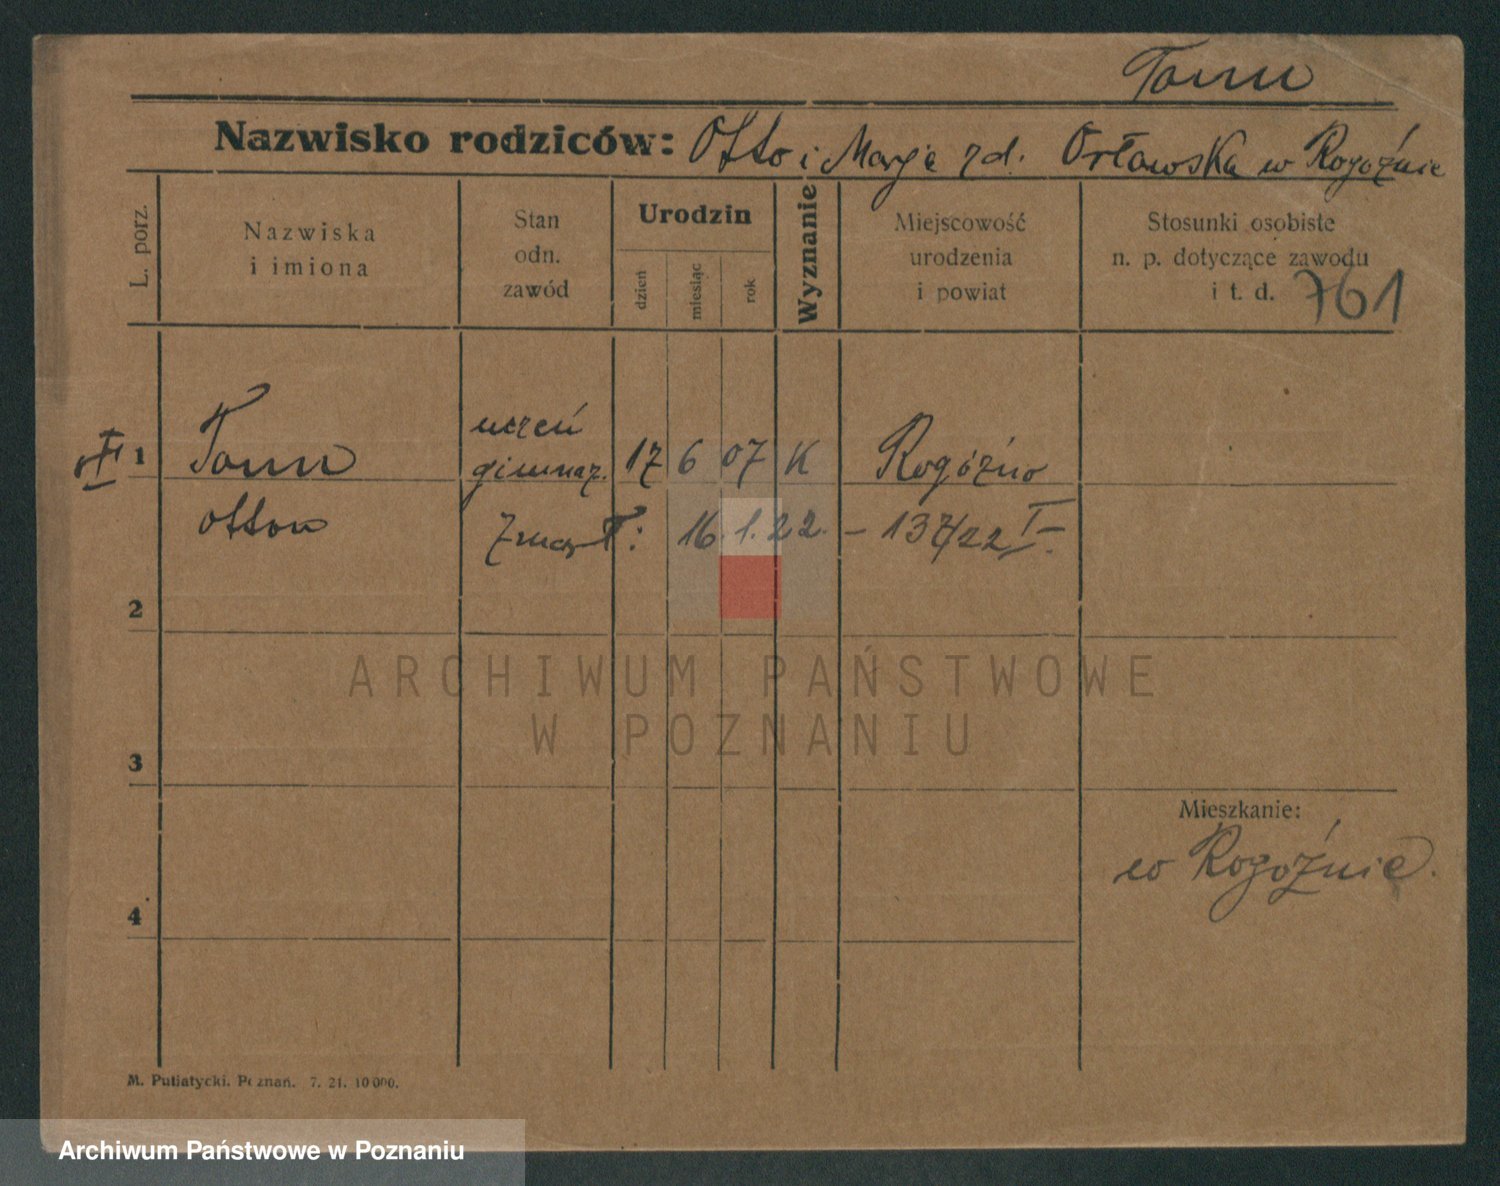 Tonn
Nazwisko rodziców: Otto i Marje zd. Orławska w Rogoźnie
L. porz.
Nazwiska
i imiona
Stan
odn.
zawód
Urodzin
dzień
miesiąc
rok
Wyznanie
Miejscowość
urodzenia
i powiat
Stosunki osobiste
n. p. dotyczące zawodu
i t. d. 761
uczeń
1 Tonn gimnaz. 17 6 07 K Rogóźno
Otton zmarł: 16.1.22. – 137/22 I–
2
ARCHIWUM PAŃSTWOWE
W POZNANIU
3
Mieszkanie:
w Rogoźnie.
4
M. Putiatycki. Poznań. 7. 21. 10 000.
Archiwum Państwowe w Poznaniu